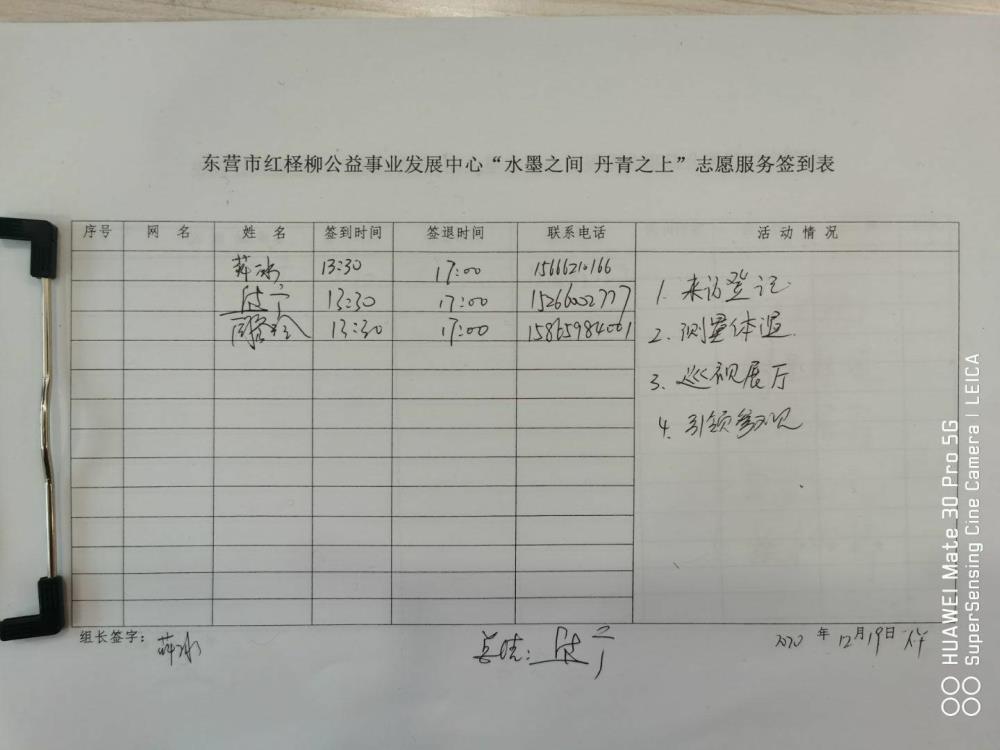 东营市红柽柳公益事业发展中心“水墨之间 丹青之上”志愿服务签到表
序号 网 名 姓 名 签到时间 签退时间 联系电话 活 动 情 况
萍冰 13:30 17:00 15666210166
13:30 17:00 15266002777
13:30 17:00 15865984001
1. 来访登记
2. 测量体温.
3. 巡视展厅
4. 引领参观
组长签字: 萍冰
总结:
2020 年 12月19日
HUAWEI Mate 30 Pro 5G
SuperSensing Cine Camera | LEICA